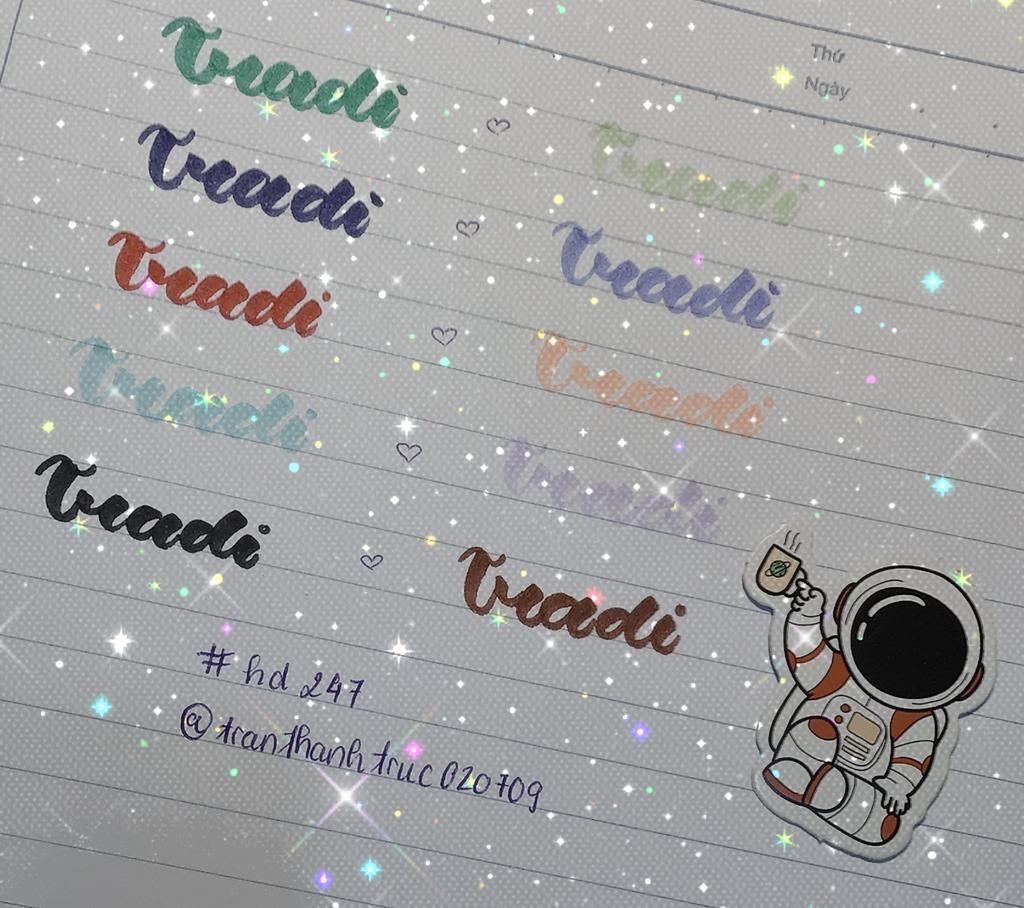 Thứ
Ngày
Tradi
Tradi
Tradi
Tradi
Tradi
Tradi
Tradi
Tradi
Tradi
Tradi
# hd 247
@tranthanhtruc020709